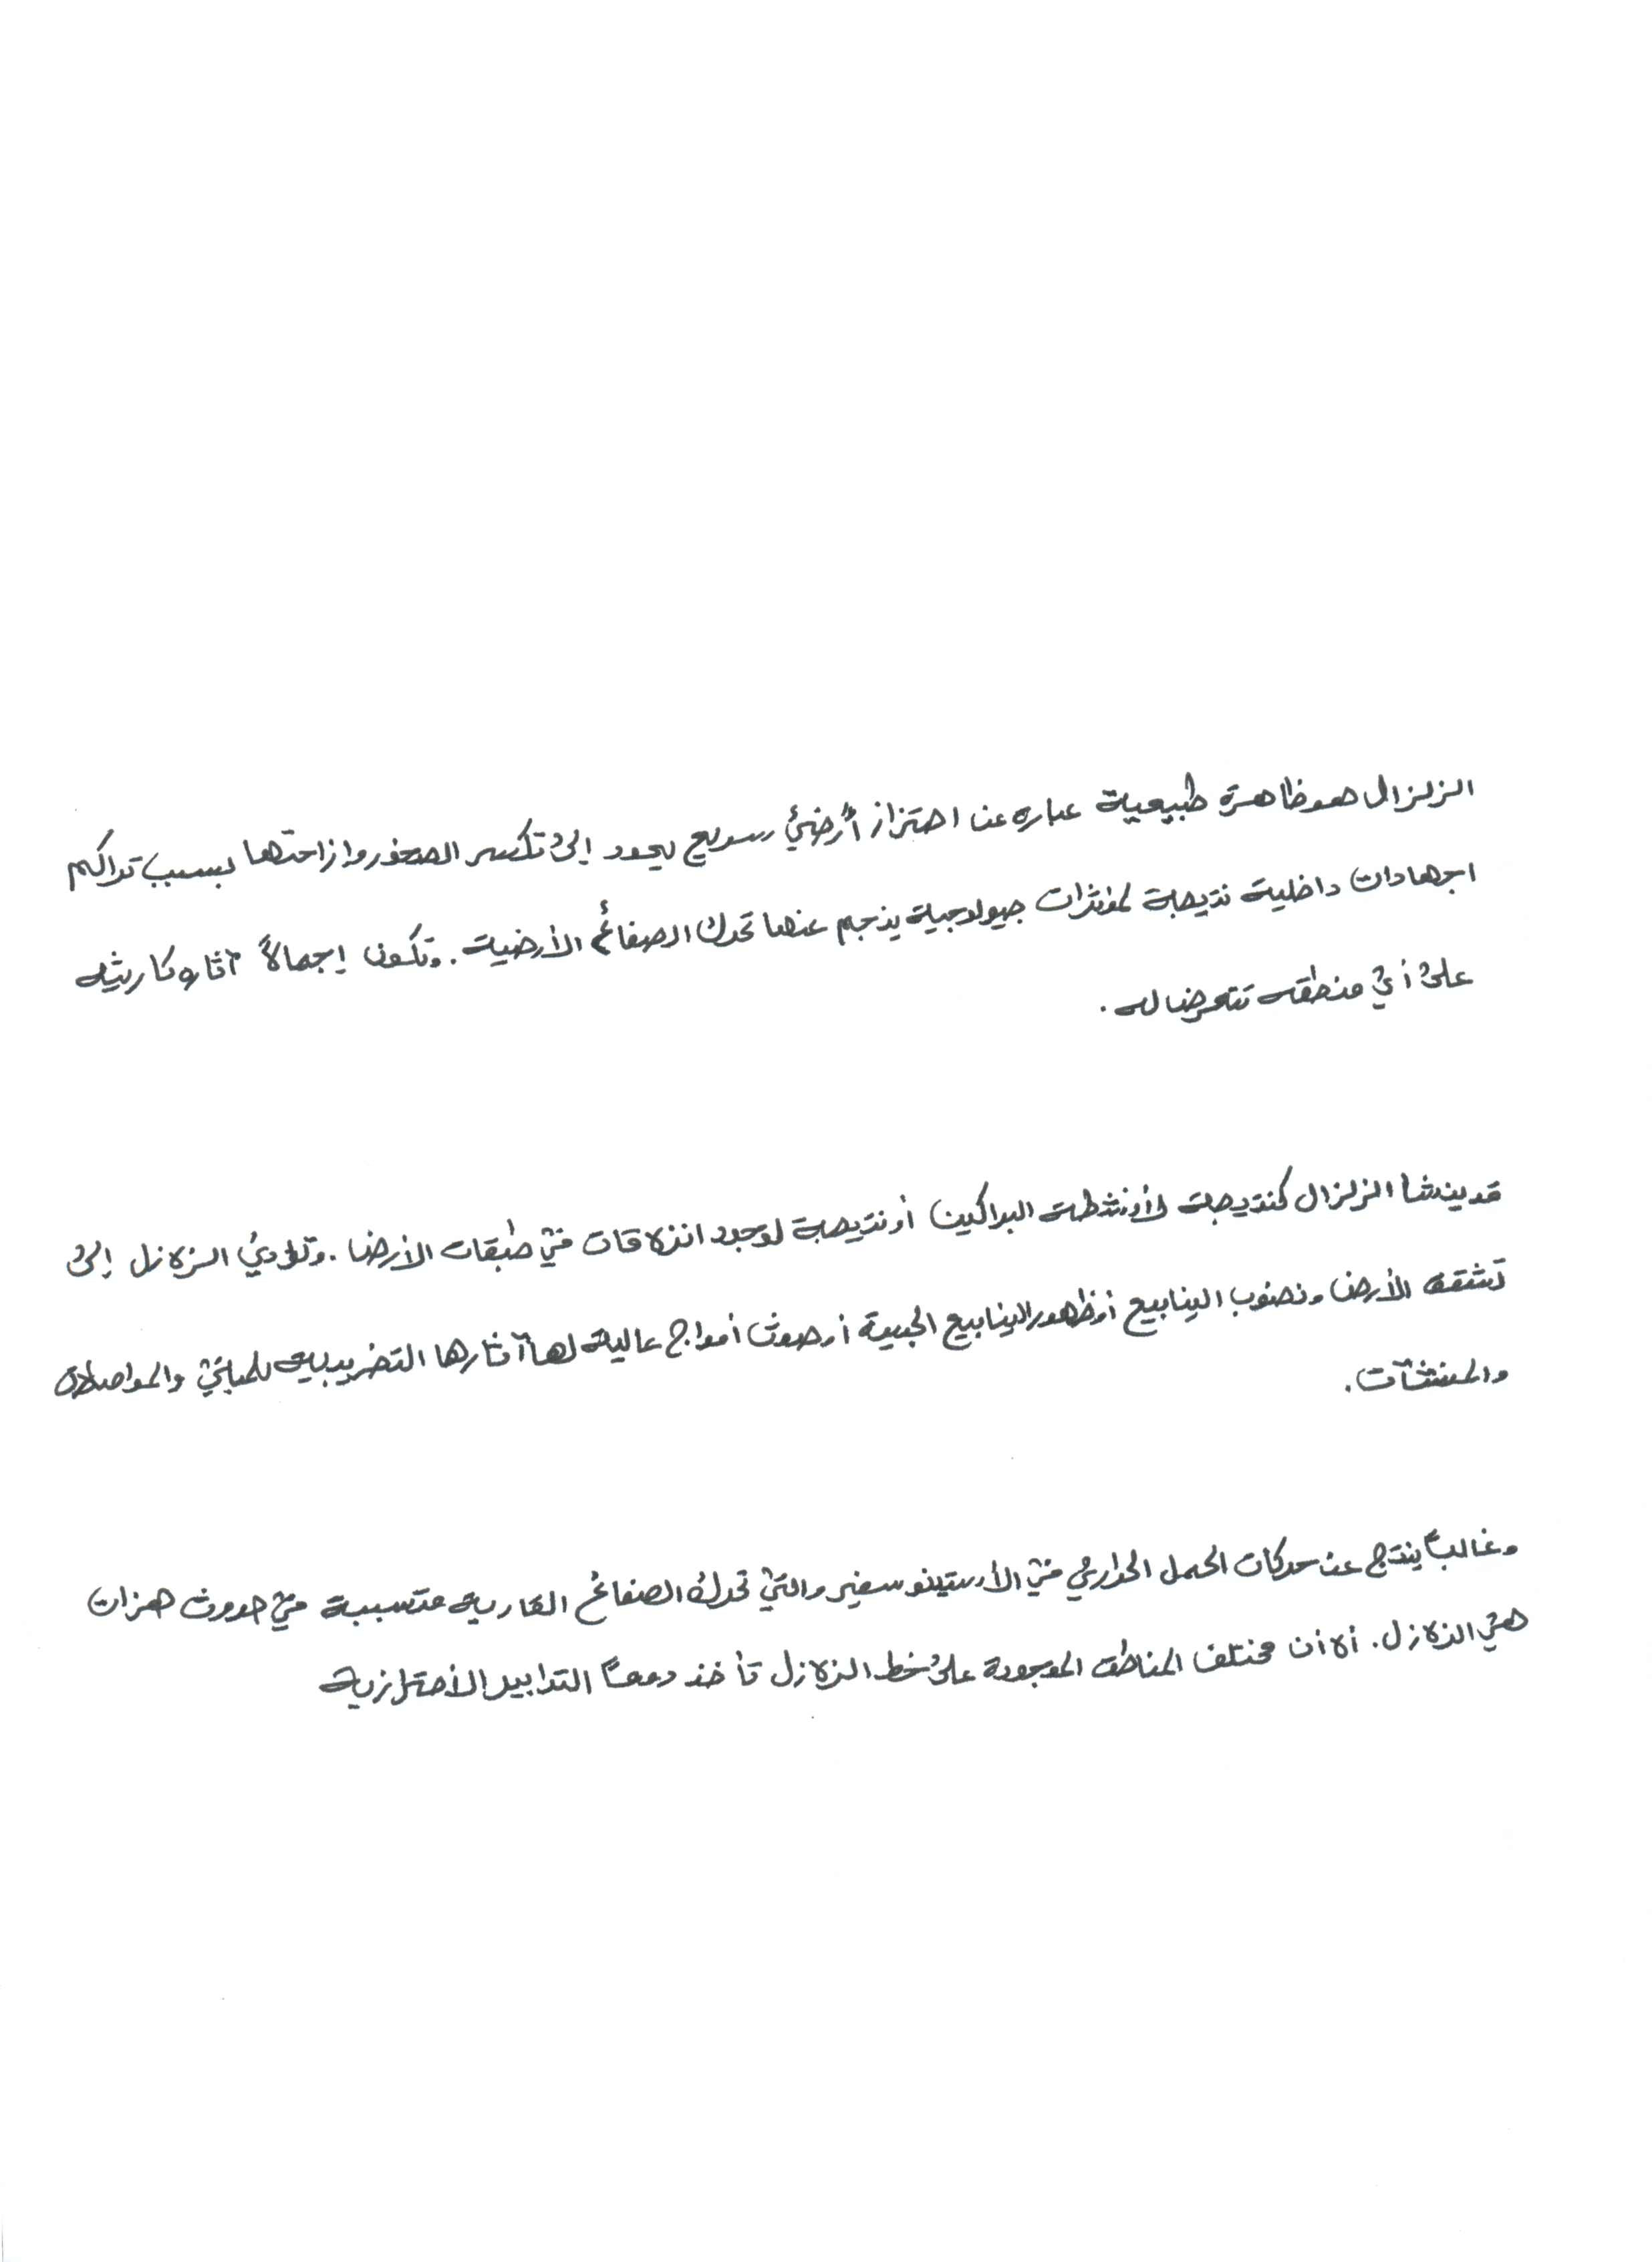 الزلزال هو ظاهرة طبيعية عباره عن اهتزاز أرضي سريع يعود إلى تكسر الصخور وإزاحتها بسبب تراكم
اجهادات داخلية نتيجة لمؤثرات جيولوجية ينجم عنها تحرك الصفائح الأرضية. وتكون إجمالاً آثاره كارثيه
على أي منطقه تتعرض له.
قد ينشا الزلزال كنتيجة لأنشطة البراكين أو نتيجة لوجود انزلاقات في طبقات الأرض. وتؤدي الزلازل إلى
تشقق الأرض ونضوب الينابيع أو ظهور الينابيع الجديدة أو حدوث أمواج عالية لها آثارها التخريبية للمباني والمواصلات
والمنشآت.
وغالباً ينتج عن حركات الحمل الحراري في الأرستينوسفير والتي تحرك الصفائح القارية متسببة في حدوث هزات
هي الزلازل. ألا أن مختلف المناطق الموجودة على خط الزلازل تأخذ دوماً التدابير الأحترازية